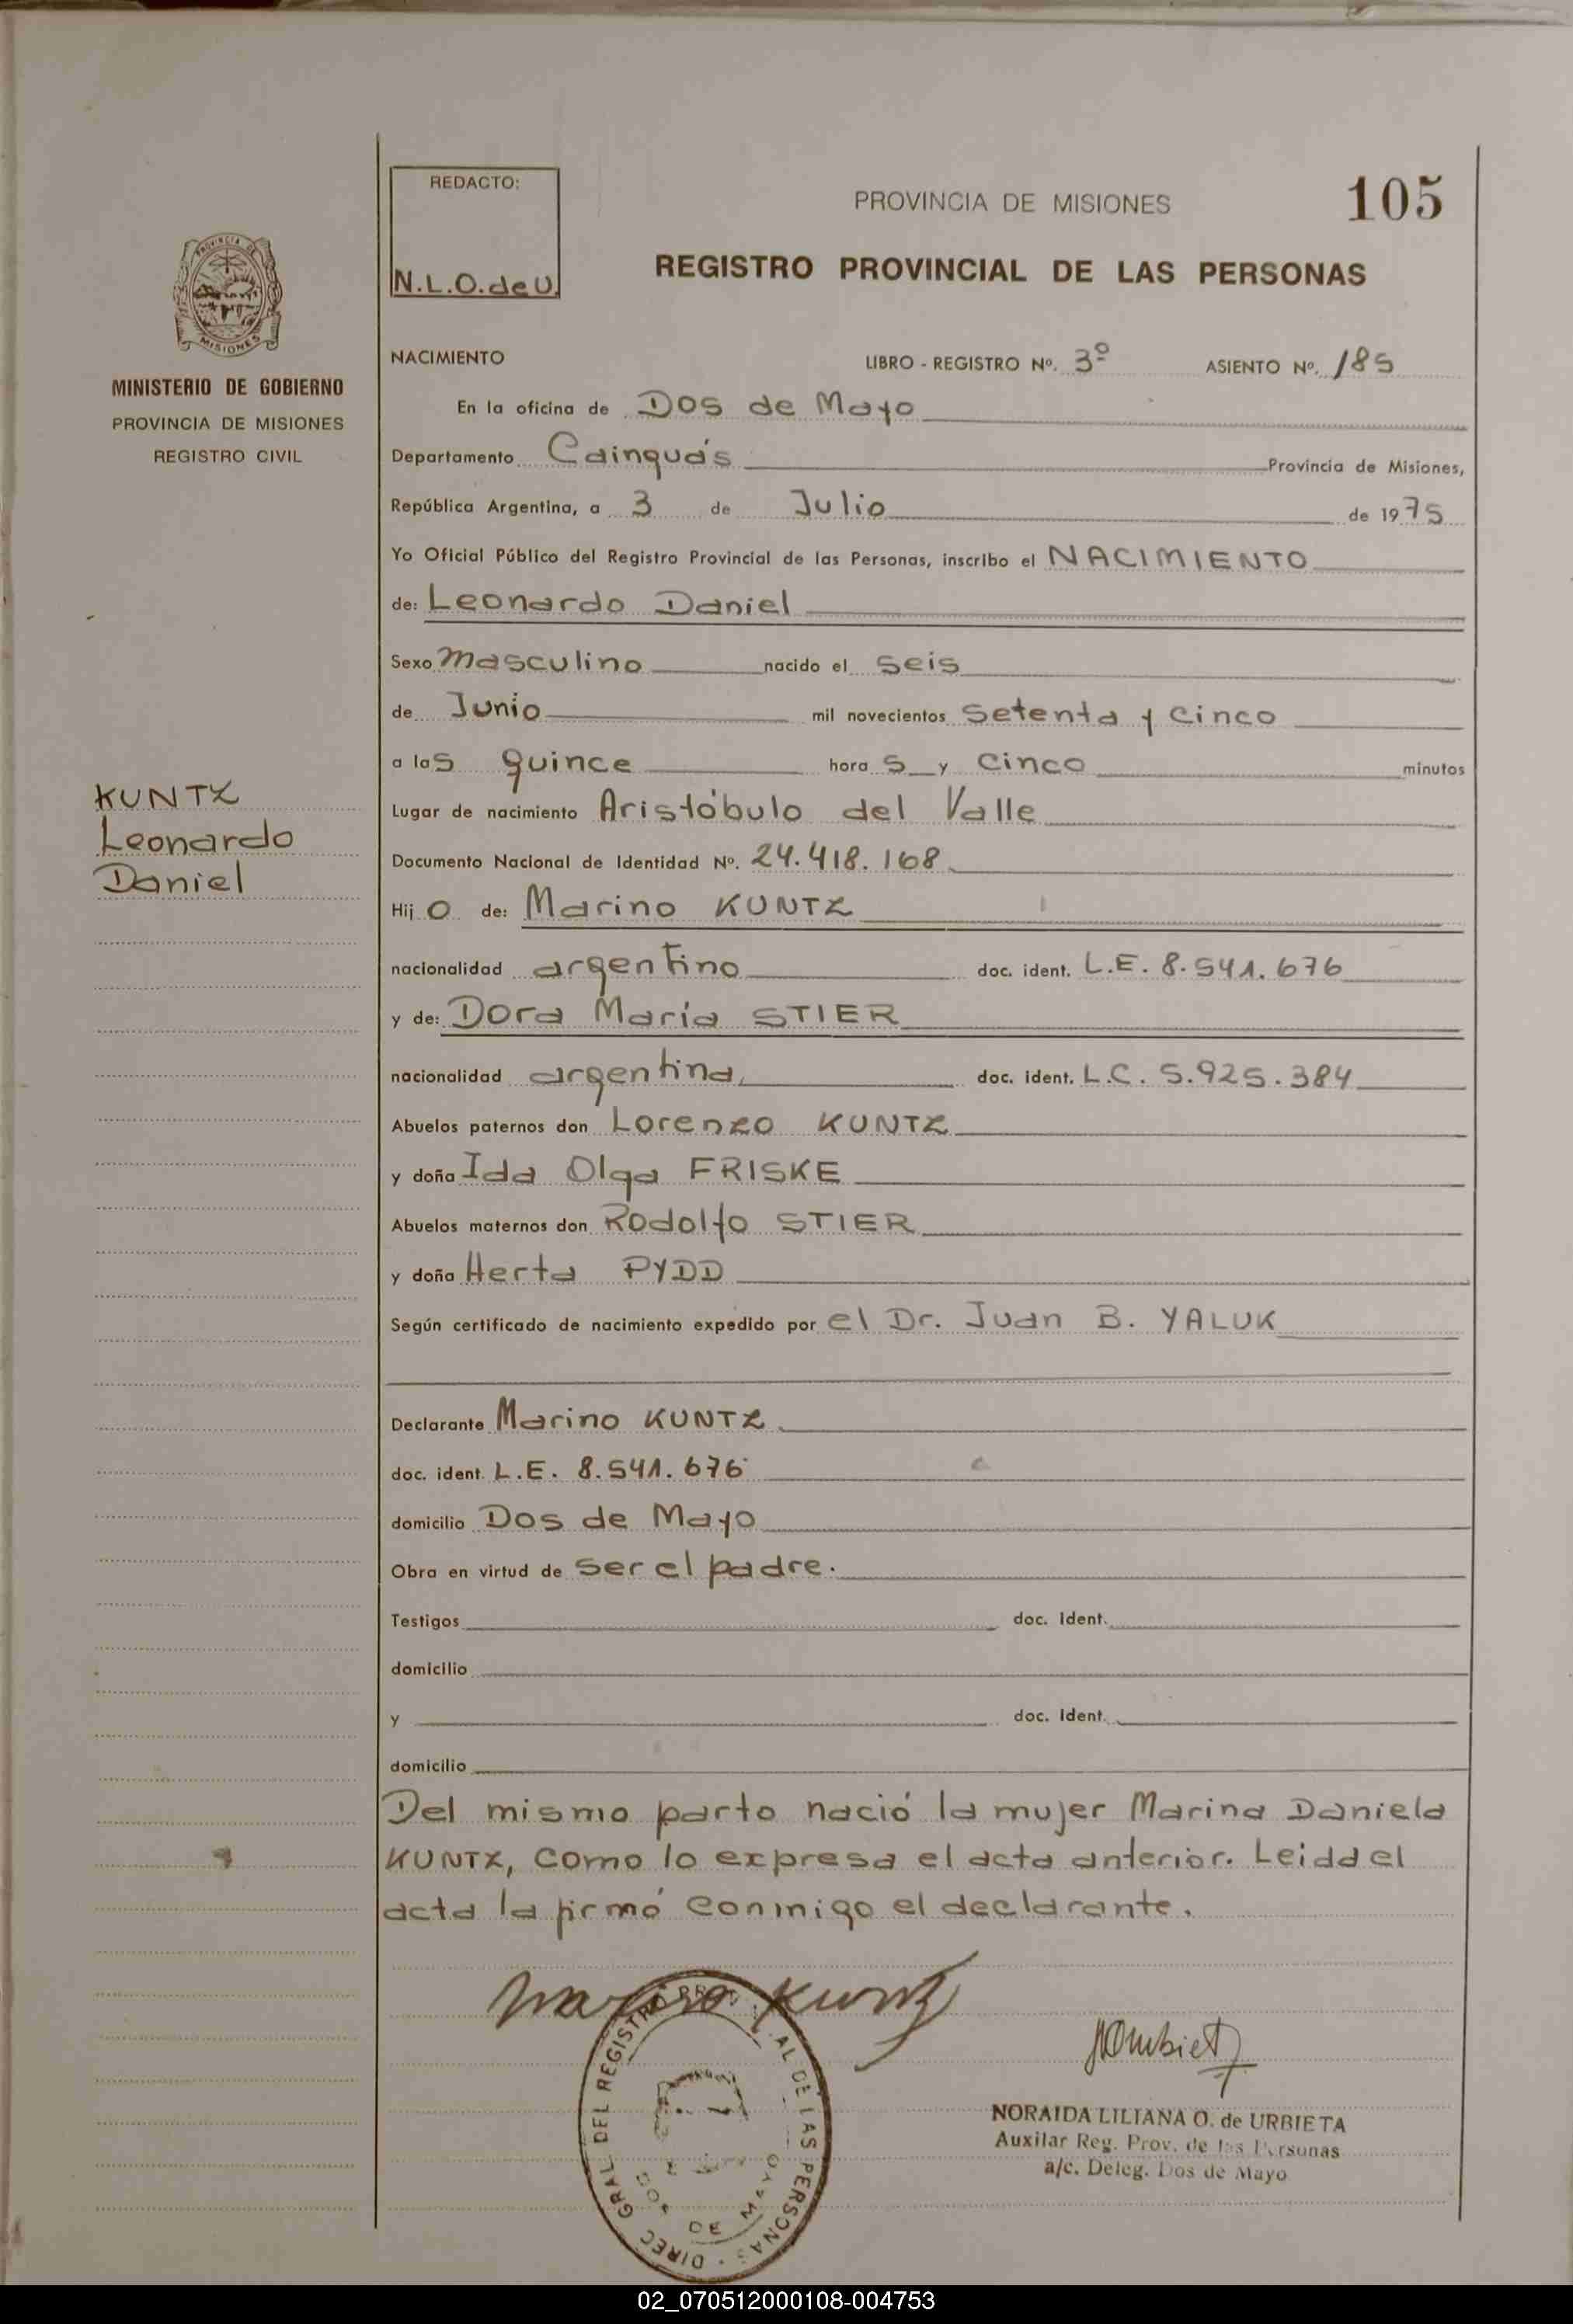 REDACTO:
N.L.O.deU.
PROVINCIA DE MISIONES
105
REGISTRO PROVINCIAL DE LAS PERSONAS
PROVINCIA DE
MISIONES
MINISTERIO DE GOBIERNO
PROVINCIA DE MISIONES
REGISTRO CIVIL
NACIMIENTO LIBRO - REGISTRO Nº. 3º ASIENTO Nº. 185
En la oficina de Dos de Mayo
Departamento Cainguás Provincia de Misiones,
República Argentina, a 3 de Julio de 1975
Yo Oficial Público del Registro Provincial de las Personas, inscribo el NACIMIENTO
de: Leonardo Daniel
Sexo Masculino nacido el seis
de Junio mil novecientos setenta y cinco
a las quince horas y cinco minutos
KUNTZ
Leonardo
Daniel
Lugar de nacimiento Aristóbulo del Valle
Documento Nacional de Identidad Nº. 24.418.168
Hijo de: Marino KUNTZ
nacionalidad argentino doc. ident. L.E. 8.541.676
y de: Dora María STIER
nacionalidad argentina, doc. ident. L.C. 5.925.384
Abuelos paternos don Lorenzo KUNTZ
y doña Ida Olga FRISKE
Abuelos maternos don Rodolfo STIER
y doña Herta PYDD
Según certificado de nacimiento expedido por el Dr. Juan B. YALUK
Declarante Marino KUNTZ
doc. ident. L.E. 8.541.676
domicilio Dos de Mayo
Obra en virtud de ser el padre.
Testigos doc. Ident.
domicilio
y doc. Ident.
domicilio
Del mismo parto nació la mujer Marina Daniela
KUNTZ, como lo expresa el acta anterior. Leida el
acta la firmó conmigo el declarante.
Marino Kuntz
DIREC GRAL DEL REGISTRO PROV AL DE LAS PERSONAS
DOS DE MAYO
NORAIDA LILIANA O. de URBIETA
Auxilar Reg. Prov. de las Personas
a/c. Deleg. Dos de Mayo
02_070512000108-004753